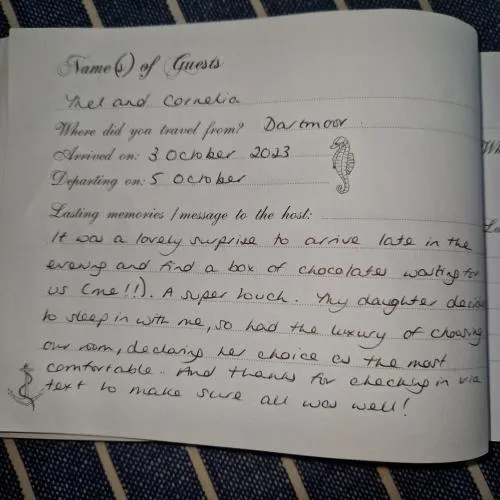 Name(s) of Guests
and Cornelia
Where did you travel from? Dartmoor
Arrived on: 3 October 2023
Departing on: 5 October
Lasting memories / message to the host:
It was a lovely surprise to arrive late in the
evening and find a box of chocolates waiting for
us (me!!). A super touch. My daughter
to sleep in with me, so had the luxury of choosing
our room, declaring her choice as the most
comfortable.. And thanks for checking in via
text to make sure all was well!